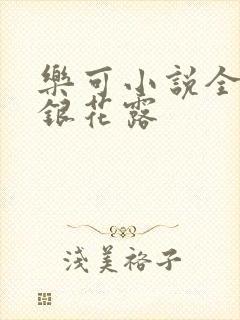 樂可小說全
銀花露
淺美裕子